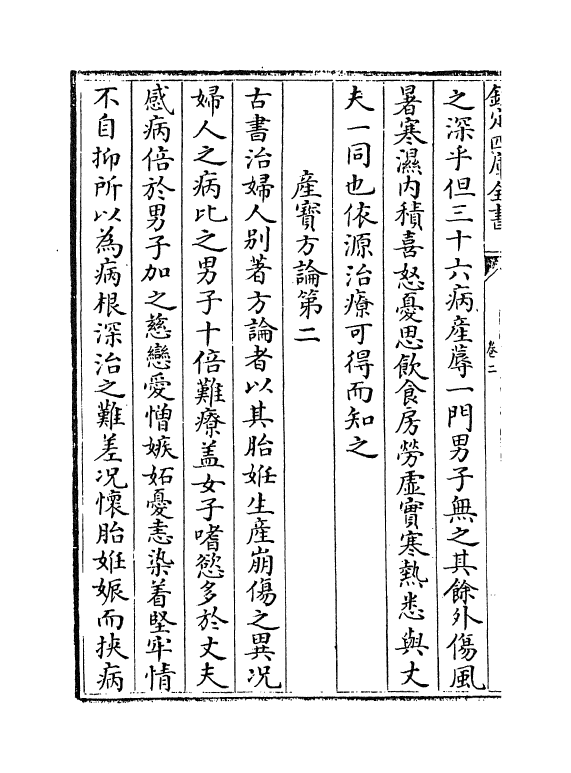 欽定四庫全書
卷二
之深乎但三十六病產蓐一門男子無之其餘外傷風
暑寒濕內積喜怒憂思飲食房勞虛實寒熱悉與丈
夫一同也依源治療可得而知之
產寶方論第二
古書治婦人别著方論者以其胎姙生產崩傷之異况
婦人之病比之男子十倍難療盖女子嗜慾多於丈夫
感病倍於男子加之慈戀愛憎嫉妬憂恚染着堅牢情
不自抑所以為病根深治之難差况懷胎姙娠而挾病